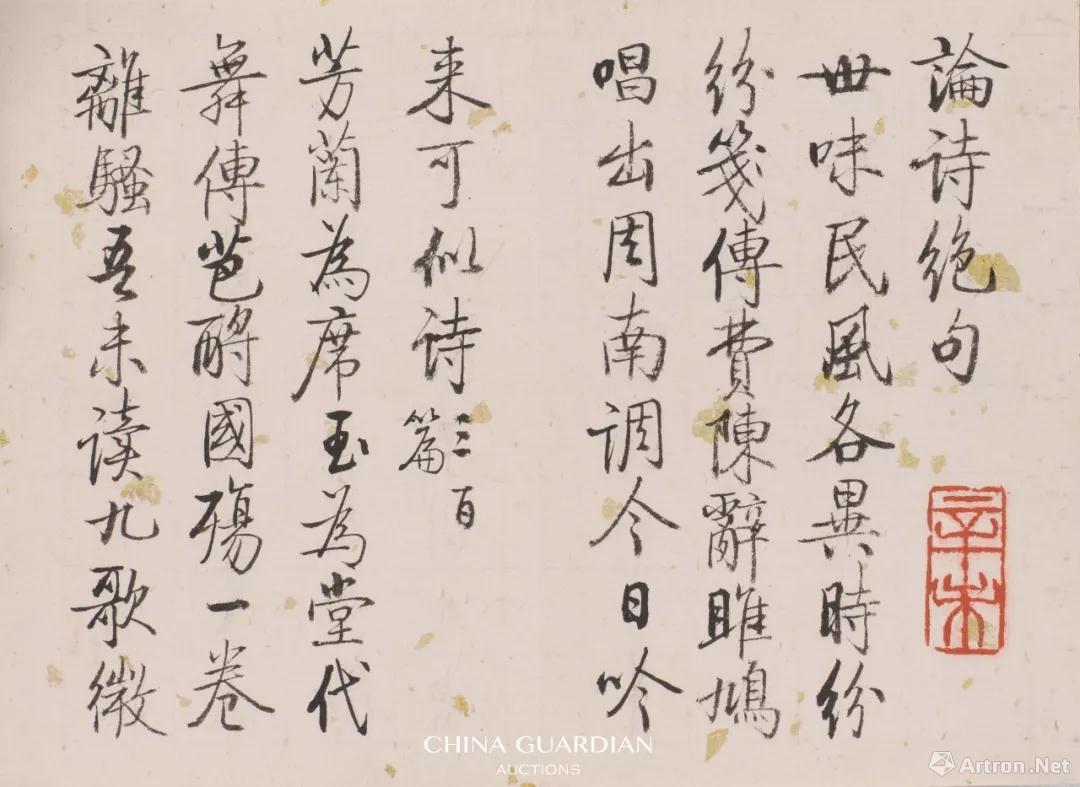 論诗绝句
辛未
世味民風各異時纷
纷箋傳費陳辭雎鳩
唱出周南调今日吟
来可似诗三百篇
芳蘭為席玉為堂代
舞傳芭酹國殤一卷
離騷吾未读九歌微
CHINA GUARDIAN
AUCTIONS
Artron.Net